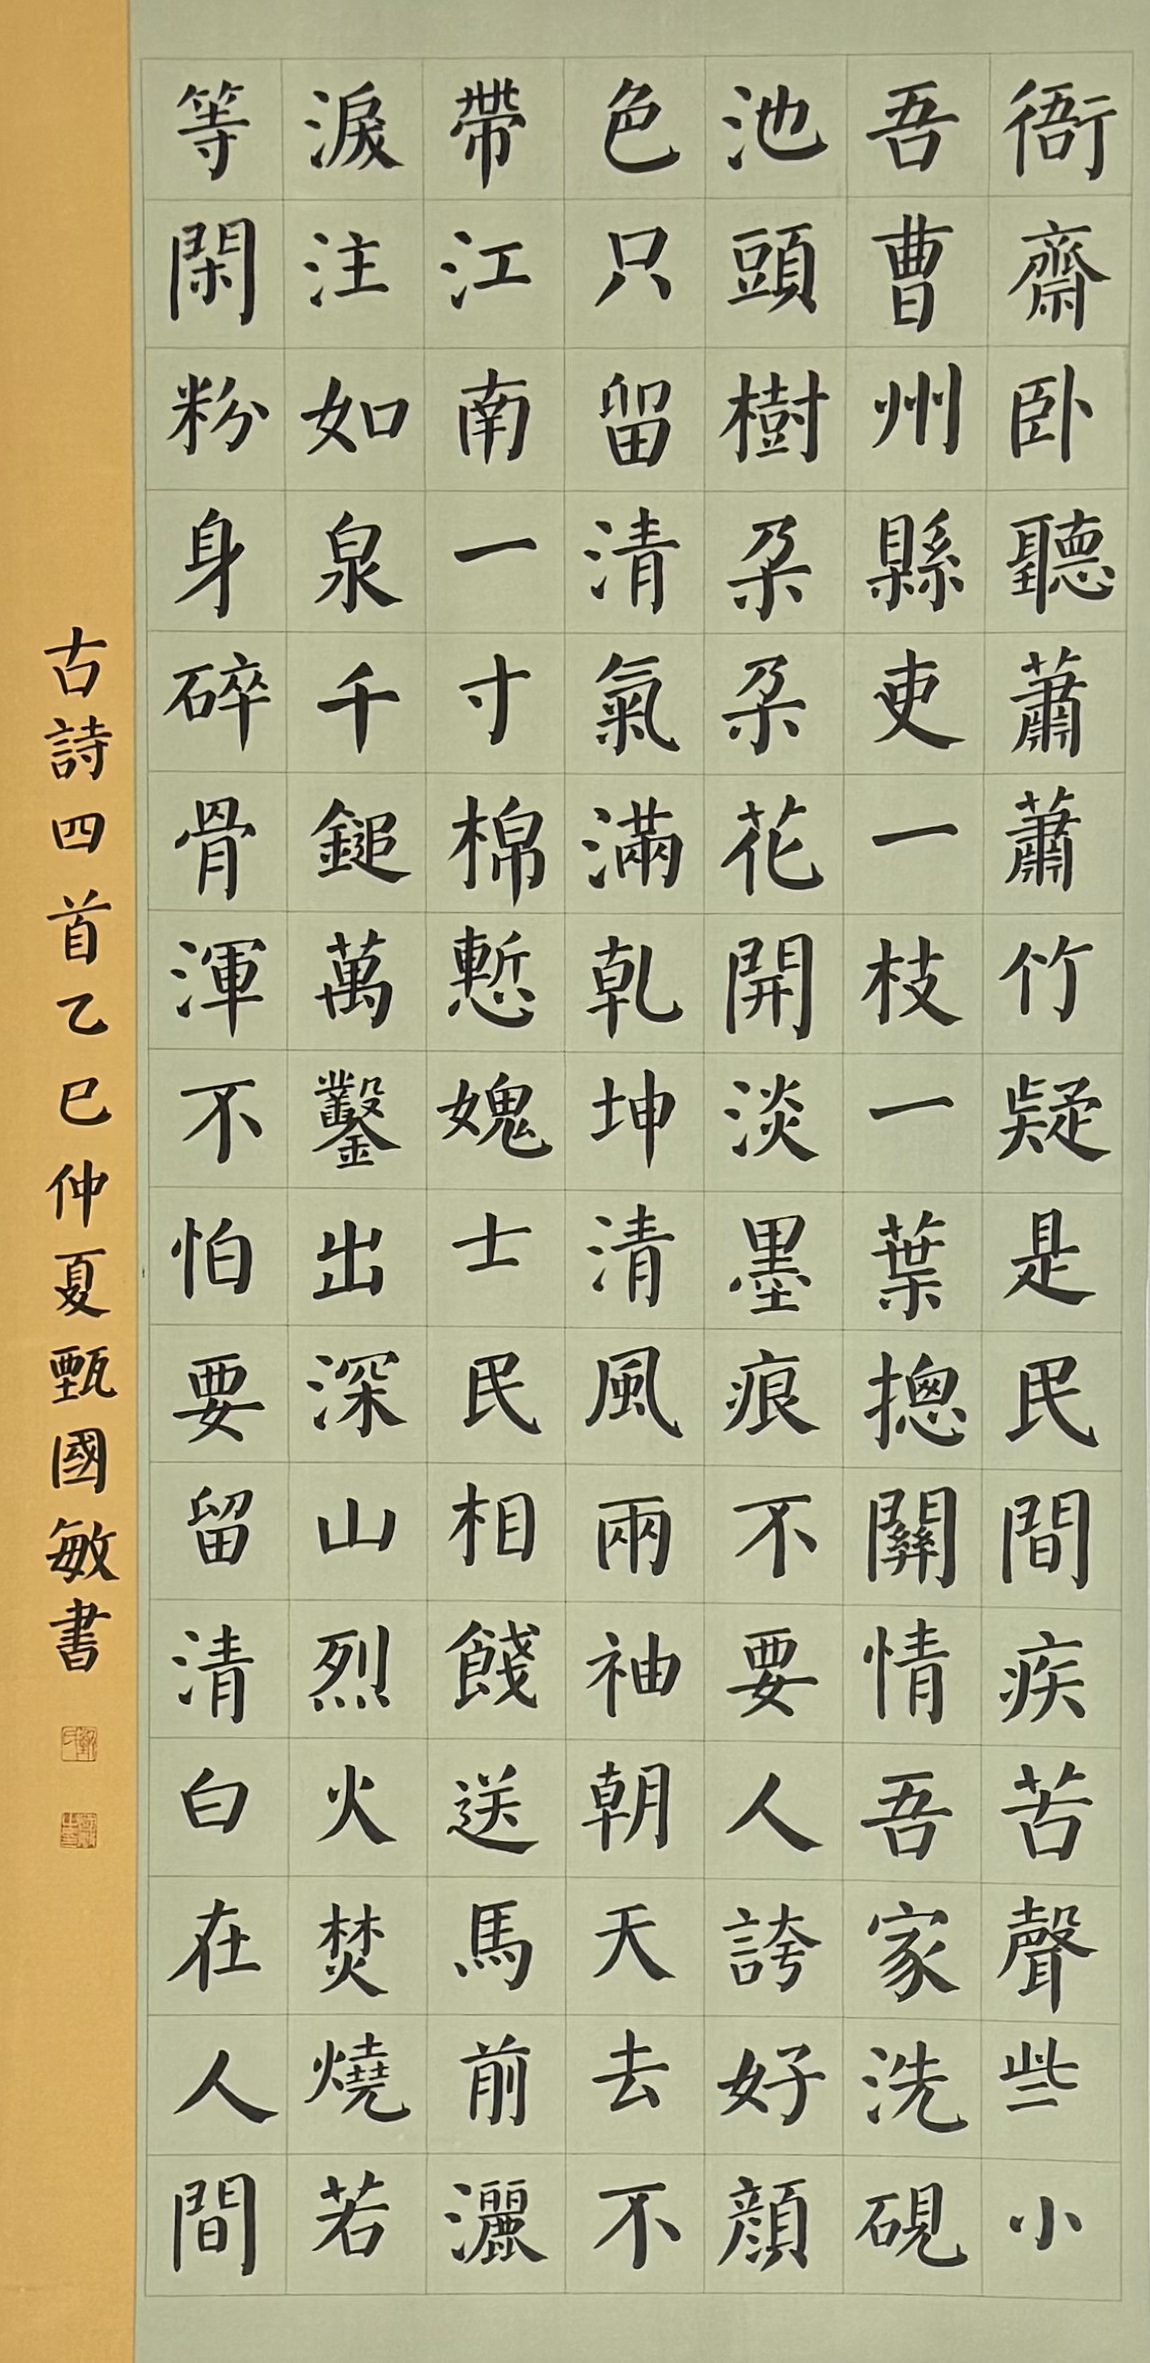 衙齋卧聽蕭蕭竹疑是民間疾苦聲些小
吾曹州縣吏一枝一葉摠關情吾家洗硯
池頭樹朶朶花開淡墨痕不要人誇好顔
色只留清氣滿乹坤清風兩袖朝天去不
帶江南一寸棉慙媿士民相餞送馬前灑
淚注如泉千鎚萬鑿出深山烈火焚燒若
等閑粉身碎骨渾不怕要留清白在人間
古詩四首乙巳仲夏甄國敏書